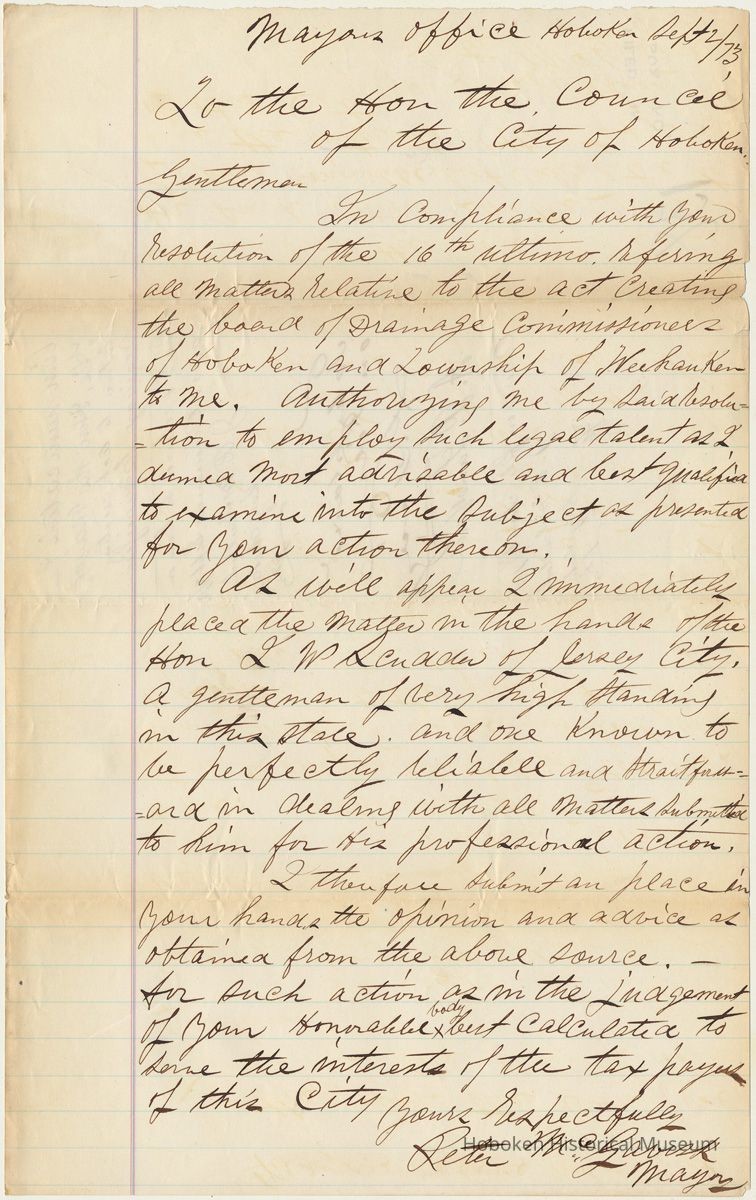 Mayors office Hoboken Sept 2/73
To the Hon the Council
of the City of Hoboken.
Gentlemen
In Compliance with your
resolution of the 16th ultimo. refering
all matters relative to the act Creating
the board of Drainage Commissioners
of Hoboken and Township of Weehauken
to me. Authorizing me by said resolu-
-tion to employ such legal talent as I
deemed most advisable and best qualified
to examine into the subject as presented
for your action thereon.
As will appear I immediately
placed the matter in the hands of the
Hon I W Scudder of Jersey City.
a gentleman of very high standing
in this state. and one known to
be perfectly reliable and straitforw-
-ard in dealing with all matters submitted
to him for his professional action.
I therefore submit an place in
your hands the opinion and advice as
obtained from the above source. —
for such action as in the judgement
of your Honorable body best calculated to
serve the interests of the tax payers
of this City
Yours respectfully
Peter McGavisk
Mayor
Hoboken Historical Museum